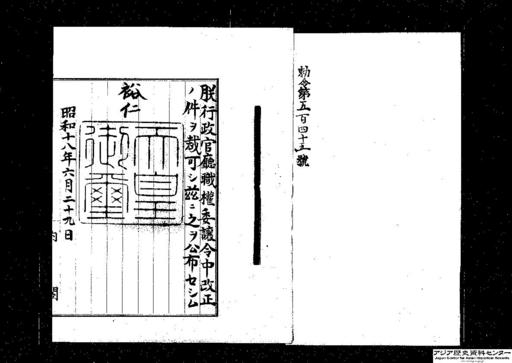 勅令第五百四十五號
朕行政官廳職權委讓令中改正
ノ件ヲ裁可シ玆ニ之ヲ公布セシム
裕仁
天皇
御璽
昭和十八年六月二十九日
内
閣
アジア歴史資料センター
Japan Center for Asian Historical Records